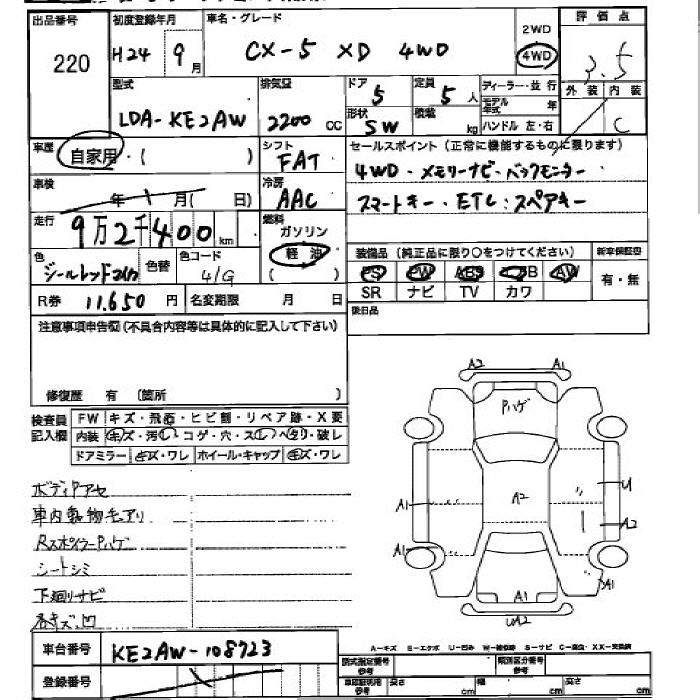 出品番号 初度登録年月 車名・グレード 評価点
220 H24 9月 CX-5 XD 4WD 2WD 4WD 3.5
型式 排気量 ドア 定員 ディーラー・並行 外装 内装
LDA-KE2AW 2200 CC 5 5人 モデル年式 年
形状 積載 kg ハンドル 左・右 C
SW
車歴 自家用・( ) シフト セールスポイント(正常に機能するものに限ります)
FAT 4WD・メモリーナビ・バックモニター
車検 年 月( 日) 冷房 AAC スマートキー・ETC・スペアキー
走行 9万2千400km 燃料 ガソリン
軽油
( )
装備品(純正品に限り○をつけてください) 新車保証書
色 色替 色コード 41G PS PW ABS AW 有・無
SR ナビ TV カワ
R券 11.650円 名変期限 月 日 後日品
注意事項申告欄(不具合内容等は具体的に記入して下さい)
修復歴 有 (箇所 )
検査員記入欄 FW キズ・飛石・ヒビ割・リペア跡・X要
内装 キズ・汚レ・コゲ・穴・スレ・ヘタリ・破レ
ドアミラー キズ・ワレ ホイール・キャップ キズ・ワレ
A2 A1
Pハゲ
A2
A1 U
A2
A1 A1
A1
UA2
ボディアセ
Rスポイラー Pハゲ
シートシミ
下廻りサビ
各キズ凹
A-キズ E-エクボ U-凹み W-補修跡 S-サビ C-腐食 XX-交換済
車台番号 KE2AW-108723 型式指定番号 参考 類別区分番号 参考
登録番号 車庫証明用 参考 長さ cm 幅 cm 高さ cm